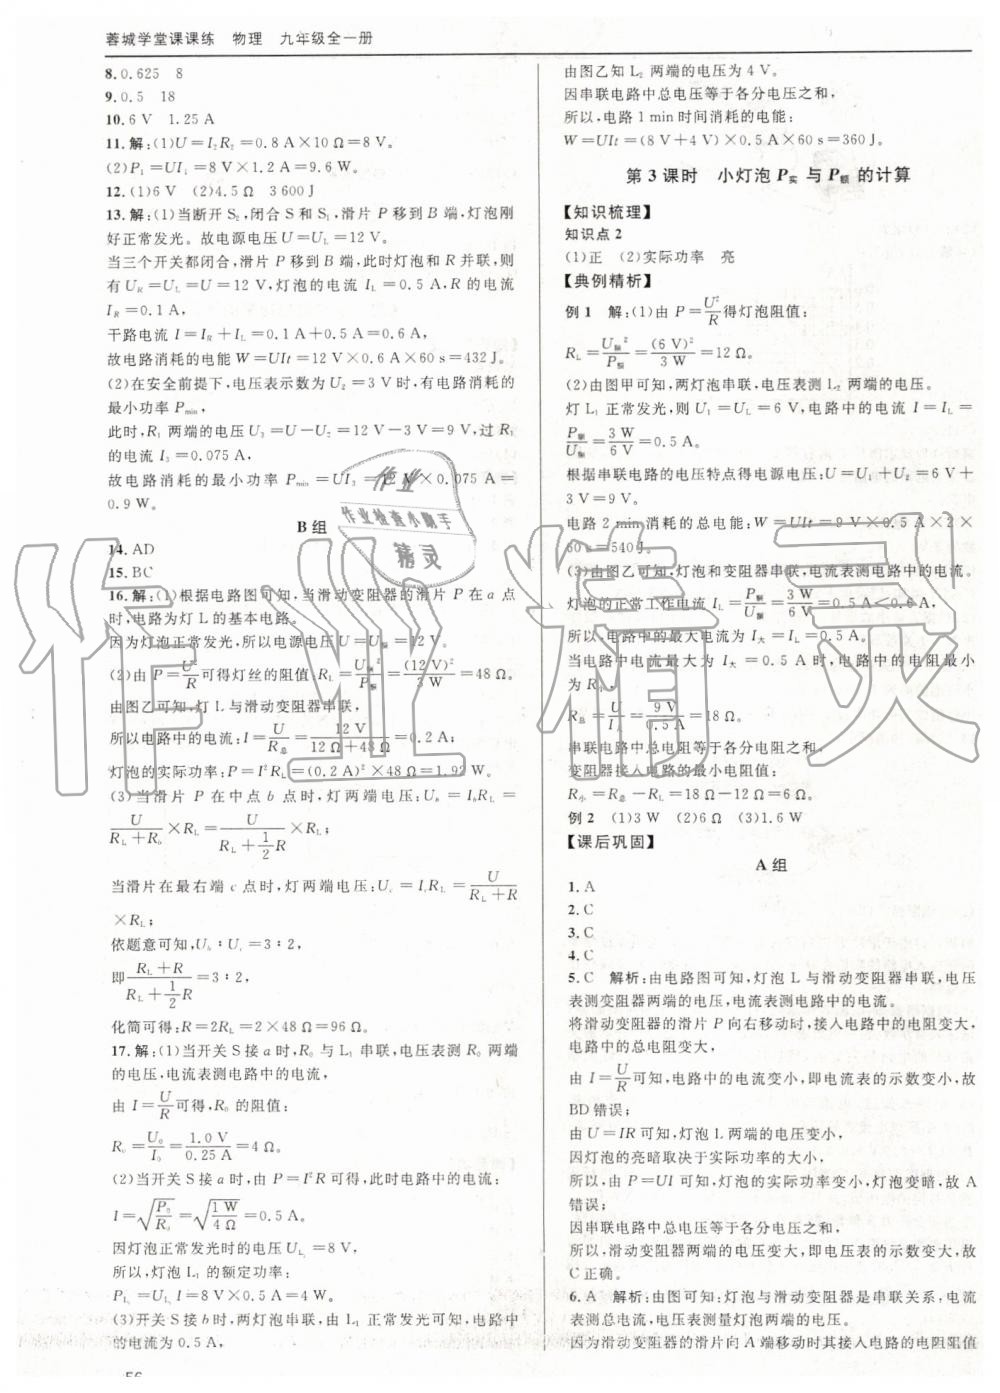 蓉城学堂课课练　物理　九年级全一册
8. 0.625　8
9. 0.5　18
10. 6 V　1.25 A
11. 解:(1)U=I₂R₂=0.8 A×10 Ω=8 V。
(2)P₁=UI₁=8 V×1.2 A=9.6 W。
12. (1)6 V　(2)4.5 Ω　3 600 J
13. 解:(1)当断开 S₂,闭合 S 和 S₁,滑片 P 移到 B 端,灯泡刚
好正常发光。故电源电压 U=U_L=12 V。
当三个开关都闭合,滑片 P 移到 B 端,此时灯泡和 R 并联,则
有 U_R=U_L=U=12 V,灯泡的电流 I_L=0.5 A,R 的电流
I_R=0.1 A,
干路电流 I=I_R+I_L=0.1 A+0.5 A=0.6 A,
故电路消耗的电能 W=UIt=12 V×0.6 A×60 s=432 J。
(2)在安全前提下,电压表示数为 U₂=3 V 时,有电路消耗的
最小功率 P_min,
此时,R₁ 两端的电压 U₃=U-U₂=12 V-3 V=9 V,过 R₁
的电流 I₃=0.075 A,
故电路消耗的最小功率 P_min=UI₃=12 V×0.075 A=
0.9 W。
B 组
14. AD
15. BC
16. 解:(1)根据电路图可知,当滑动变阻器的滑片 P 在 a 点
时,电路为灯 L 的基本电路。
因为灯泡正常发光,所以电源电压 U=U额=12 V。
(2)由 P=U²/R 可得灯丝的阻值 R_L=U额²/P额=(12 V)²/3 W=48 Ω。
由图乙可知,灯 L 与滑动变阻器串联,
所以电路中的电流:I=U/R总=12 V/(12 Ω+48 Ω)=0.2 A;
灯泡的实际功率:P=I²R_L=(0.2 A)²×48 Ω=1.92 W。
(3)当滑片 P 在中点 b 点时,灯两端电压:U_b=I_bR_L=
U/(R_L+R_b)×R_L=U/(R_L+½R)×R_L;
当滑片在最右端 c 点时,灯两端电压:U_c=I_cR_L=U/(R_L+R)
×R_L;
依题意可知,U_b∶U_c=3∶2,
即(R_L+R)/(R_L+½R)=3∶2,
化简可得:R=2R_L=2×48 Ω=96 Ω。
17. 解:(1)当开关 S 接 a 时,R₀ 与 L₁ 串联,电压表测 R₀ 两端
的电压,电流表测电路中的电流,
由 I=U/R可得,R₀ 的阻值:
R₀=U₀/I₀=1.0 V/0.25 A=4 Ω。
(2)当开关 S 接 a 时,由 P=I²R 可得,此时电路中的电流:
I=√(P₀/R₀)=√(1 W/4 Ω)=0.5 A。
因灯泡正常发光时的电压 U_L₁=8 V,
所以,灯泡 L₁ 的额定功率:
P_L₁=U_L₁I=8 V×0.5 A=4 W。
(3)开关 S 接 b 时,两灯泡串联,由 L₁ 正常发光可知,电路中
的电流为 0.5 A,
56
由图乙知 L₂ 两端的电压为 4 V。
因串联电路中总电压等于各分电压之和,
所以,电路 1 min 时间消耗的电能:
W=UIt=(8 V+4 V)×0.5 A×60 s=360 J。
第 3 课时　小灯泡 P实 与 P额 的计算
【知识梳理】
知识点 2
(1)正　(2)实际功率　亮
【典例精析】
例 1　解:(1)由 P=U²/R得灯泡阻值:
R_L=U额²/P额=(6 V)²/3 W=12 Ω。
(2)由图甲可知,两灯泡串联,电压表测 L₂ 两端的电压。
灯 L₁ 正常发光,则 U₁=U_L=6 V,电路中的电流 I=I_L=
P额/U额=3 W/6 V=0.5 A。
根据串联电路的电压特点得电源电压:U=U₁+U₂=6 V+
3 V=9 V。
电路 2 min 消耗的总电能:W=UIt=9 V×0.5 A×2×
60 s=540 J。
(3)由图乙可知,灯泡和变阻器串联,电流表测电路中的电流。
灯泡的正常工作电流 I_L=P额/U额=3 W/6 V=0.5 A<0.6 A,
所以,电路中的最大电流为 I大=I_L=0.5 A。
当电路中电流最大为 I大=0.5 A 时,电路中的电阻最小
为 R总,
R总=U/I大=9 V/0.5 A=18 Ω。
串联电路中总电阻等于各分电阻之和,
变阻器接入电路的最小电阻值:
R小=R总-R_L=18 Ω-12 Ω=6 Ω。
例 2　(1)3 W　(2)6 Ω　(3)1.6 W
【课后巩固】
A 组
1. A
2. C
3. C
4. C
5. C　解析:由电路图可知,灯泡 L 与滑动变阻器串联,电压
表测变阻器两端的电压,电流表测电路中的电流。
将滑动变阻器的滑片 P 向右移动时,接入电路中的电阻变大,
电路中的总电阻变大,
由 I=U/R可知,电路中的电流变小,即电流表的示数变小,故
BD 错误;
由 U=IR 可知,灯泡 L 两端的电压变小,
因灯泡的亮暗取决于实际功率的大小,
所以,由 P=UI 可知,灯泡的实际功率变小,灯泡变暗,故 A
错误;
因串联电路中总电压等于各分电压之和,
所以,滑动变阻器两端的电压变大,即电压表的示数变大,故
C 正确。
6. A　解析:由图可知:灯泡与滑动变阻器是串联关系,电流
表测电流,电压表测量灯泡两端的电压。
因为滑动变阻器的滑片向 A 端移动时其接入电路的电阻阻值
作业
作业检查小助手
精灵
作业精灵